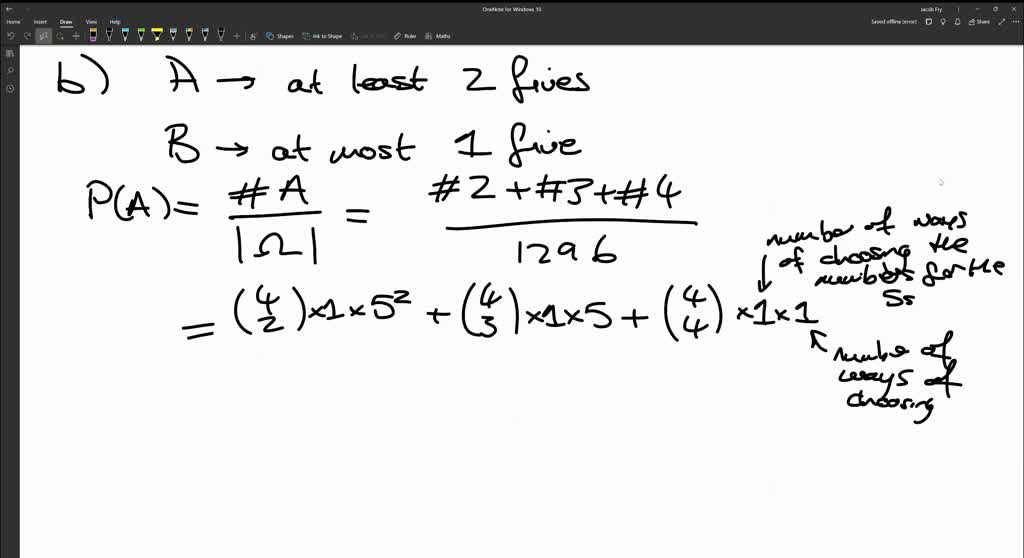 OneNote for Windows 10
Jacob Fry
Home Insert Draw View Help
Saved offline (error) Share
Shapes Ink to Shape Ruler Maths
b) A → at least 2 fives
B → at most 1 five
P(A) = #A / |Ω| = #2 + #3 + #4 / 1296
= (4 2) × 1 × 5² + (4 3) × 1 × 5 + (4 4) × 1 × 1
number of ways
of choosing the
numbers for the
5s
number of
ways of
choosing